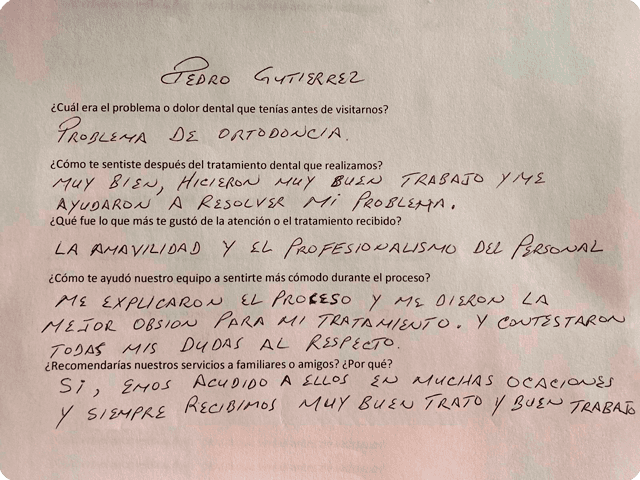 PEDRO GUTIERREZ
¿Cuál era el problema o dolor dental que tenías antes de visitarnos?
PROBLEMA DE ORTODONCIA.
¿Cómo te sentiste después del tratamiento dental que realizamos?
MUY BIEN, HICIERON MUY BUEN TRABAJO Y ME
AYUDARON A RESOLVER MI PROBLEMA.
¿Qué fue lo que más te gustó de la atención o el tratamiento recibido?
LA AMAVILIDAD Y EL PROFESIONALISMO DEL PERSONAL
¿Cómo te ayudó nuestro equipo a sentirte más cómodo durante el proceso?
ME EXPLICARON EL PROCESO Y ME DIERON LA
MEJOR OBSION PARA MI TRATAMIENTO. Y CONTESTARON
TODAS MIS DUDAS AL RESPECTO.
¿Recomendarías nuestros servicios a familiares o amigos? ¿Por qué?
SI, EMOS ACUDIDO A ELLOS EN MUCHAS OCACIONES
Y SIEMPRE RECIBIMOS MUY BUEN TRATO Y BUEN TRABAJO